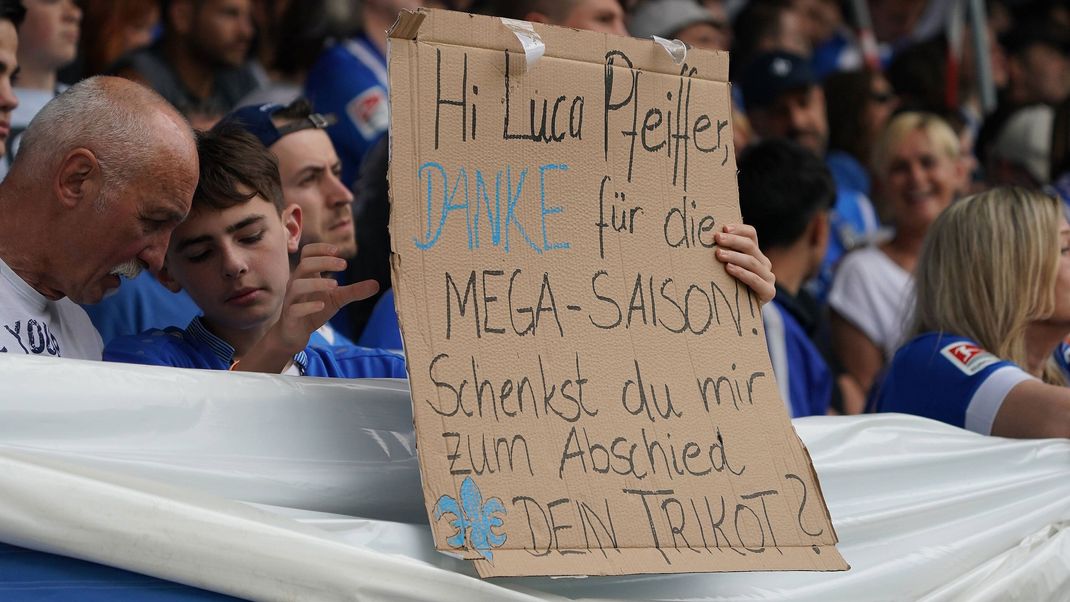 Hi Luca Pfeiffer,
DANKE für die
MEGA-SAISON!
Schenkst du mir
zum Abschied
DEIN TRIKOT?
YOU